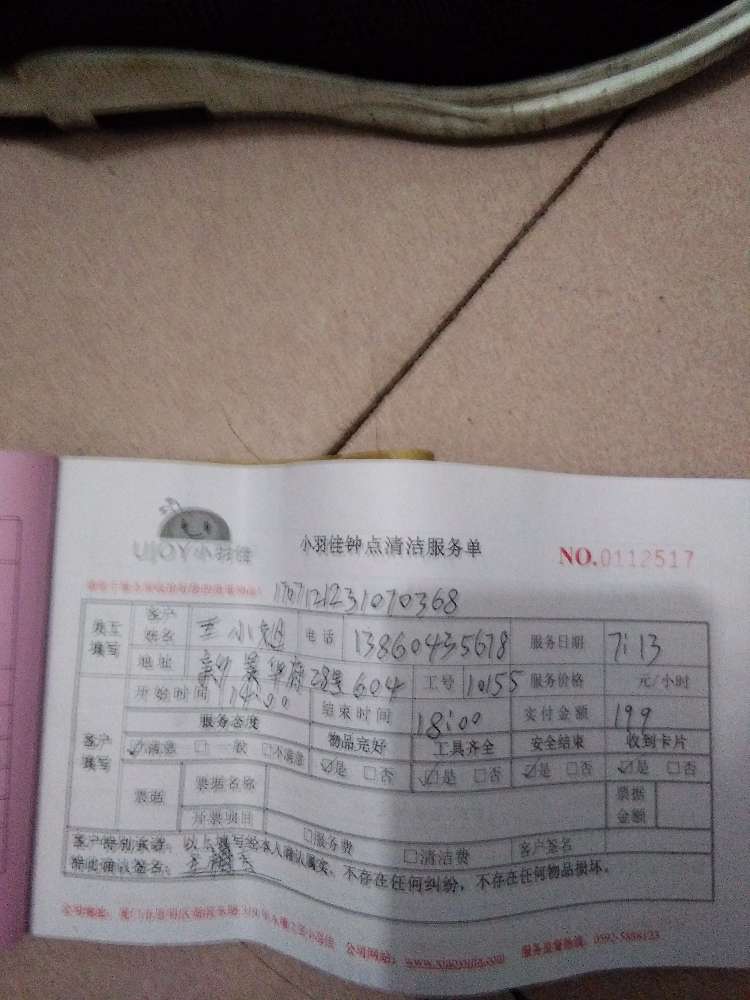 UJOY小羽佳
小羽佳钟点清洁服务单
NO.0112517
1707121231070368
员工填写 客户姓名 王小 电话 13860435678 服务日期 7:13
地址 28号604 工号 10155 服务价格 元/小时
开始时间 14:00 结束时间 18:00 实付金额 199
客户填写 服务态度 物品完好 工具齐全 安全结束 收到卡片
☑满意 □一般 □不满意 ☑是 □否 ☑是 □否 ☑是 □否 ☑是 □否
票据 票据名称 票据金额
开票项目 □服务费 □清洁费 客户签名
客户特别承诺：以上填写经本人确认属实，不存在任何纠纷，不存在任何物品损坏。
特此确认签名：
公司网站：www.xiaoyujia.com 服务监督热线：0592-5888123